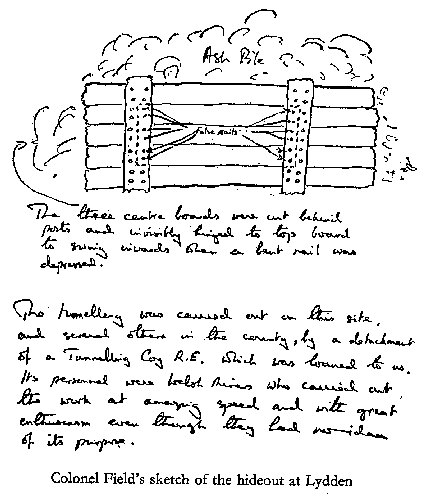 Ash Pile
false nails
The three centre boards were cut behind
posts and invisibly hinged to top board
to swing inwards when a bent nail was
depressed.
The tunnelling was carried out in this site,
and several others in the county, by a detachment
of a Tunnelling Coy R.E. which was loaned to us.
Its personnel were Welsh Miners who carried out
the work at amazing speed and with great
enthusiasm even though they had no idea
of its purpose.
Colonel Field's sketch of the hideout at Lydden